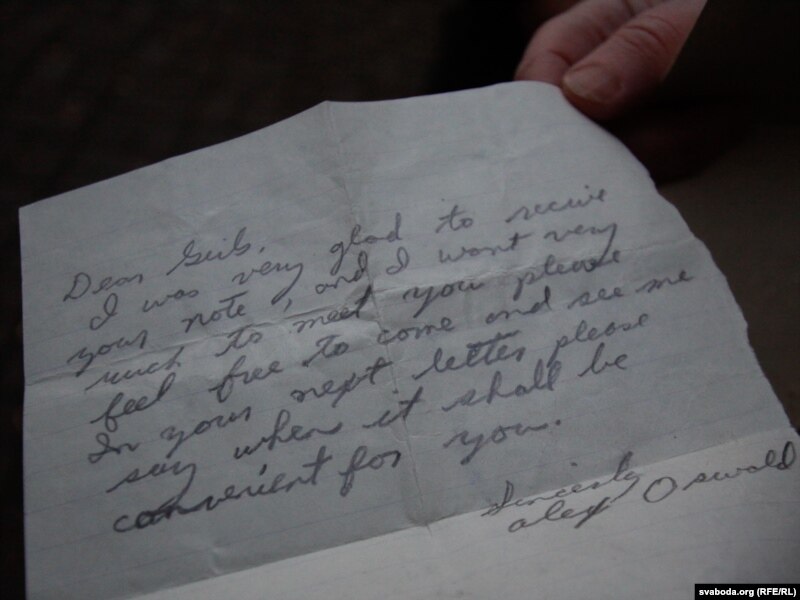 Dear Girls,
I was very glad to recive
your note, and I want very
much to meet you please
feel free to come and see me
In your next letter please
say when it shall be
convenient for you.
Sincerly
Alex Oswald
svaboda.org (RFE/RL)